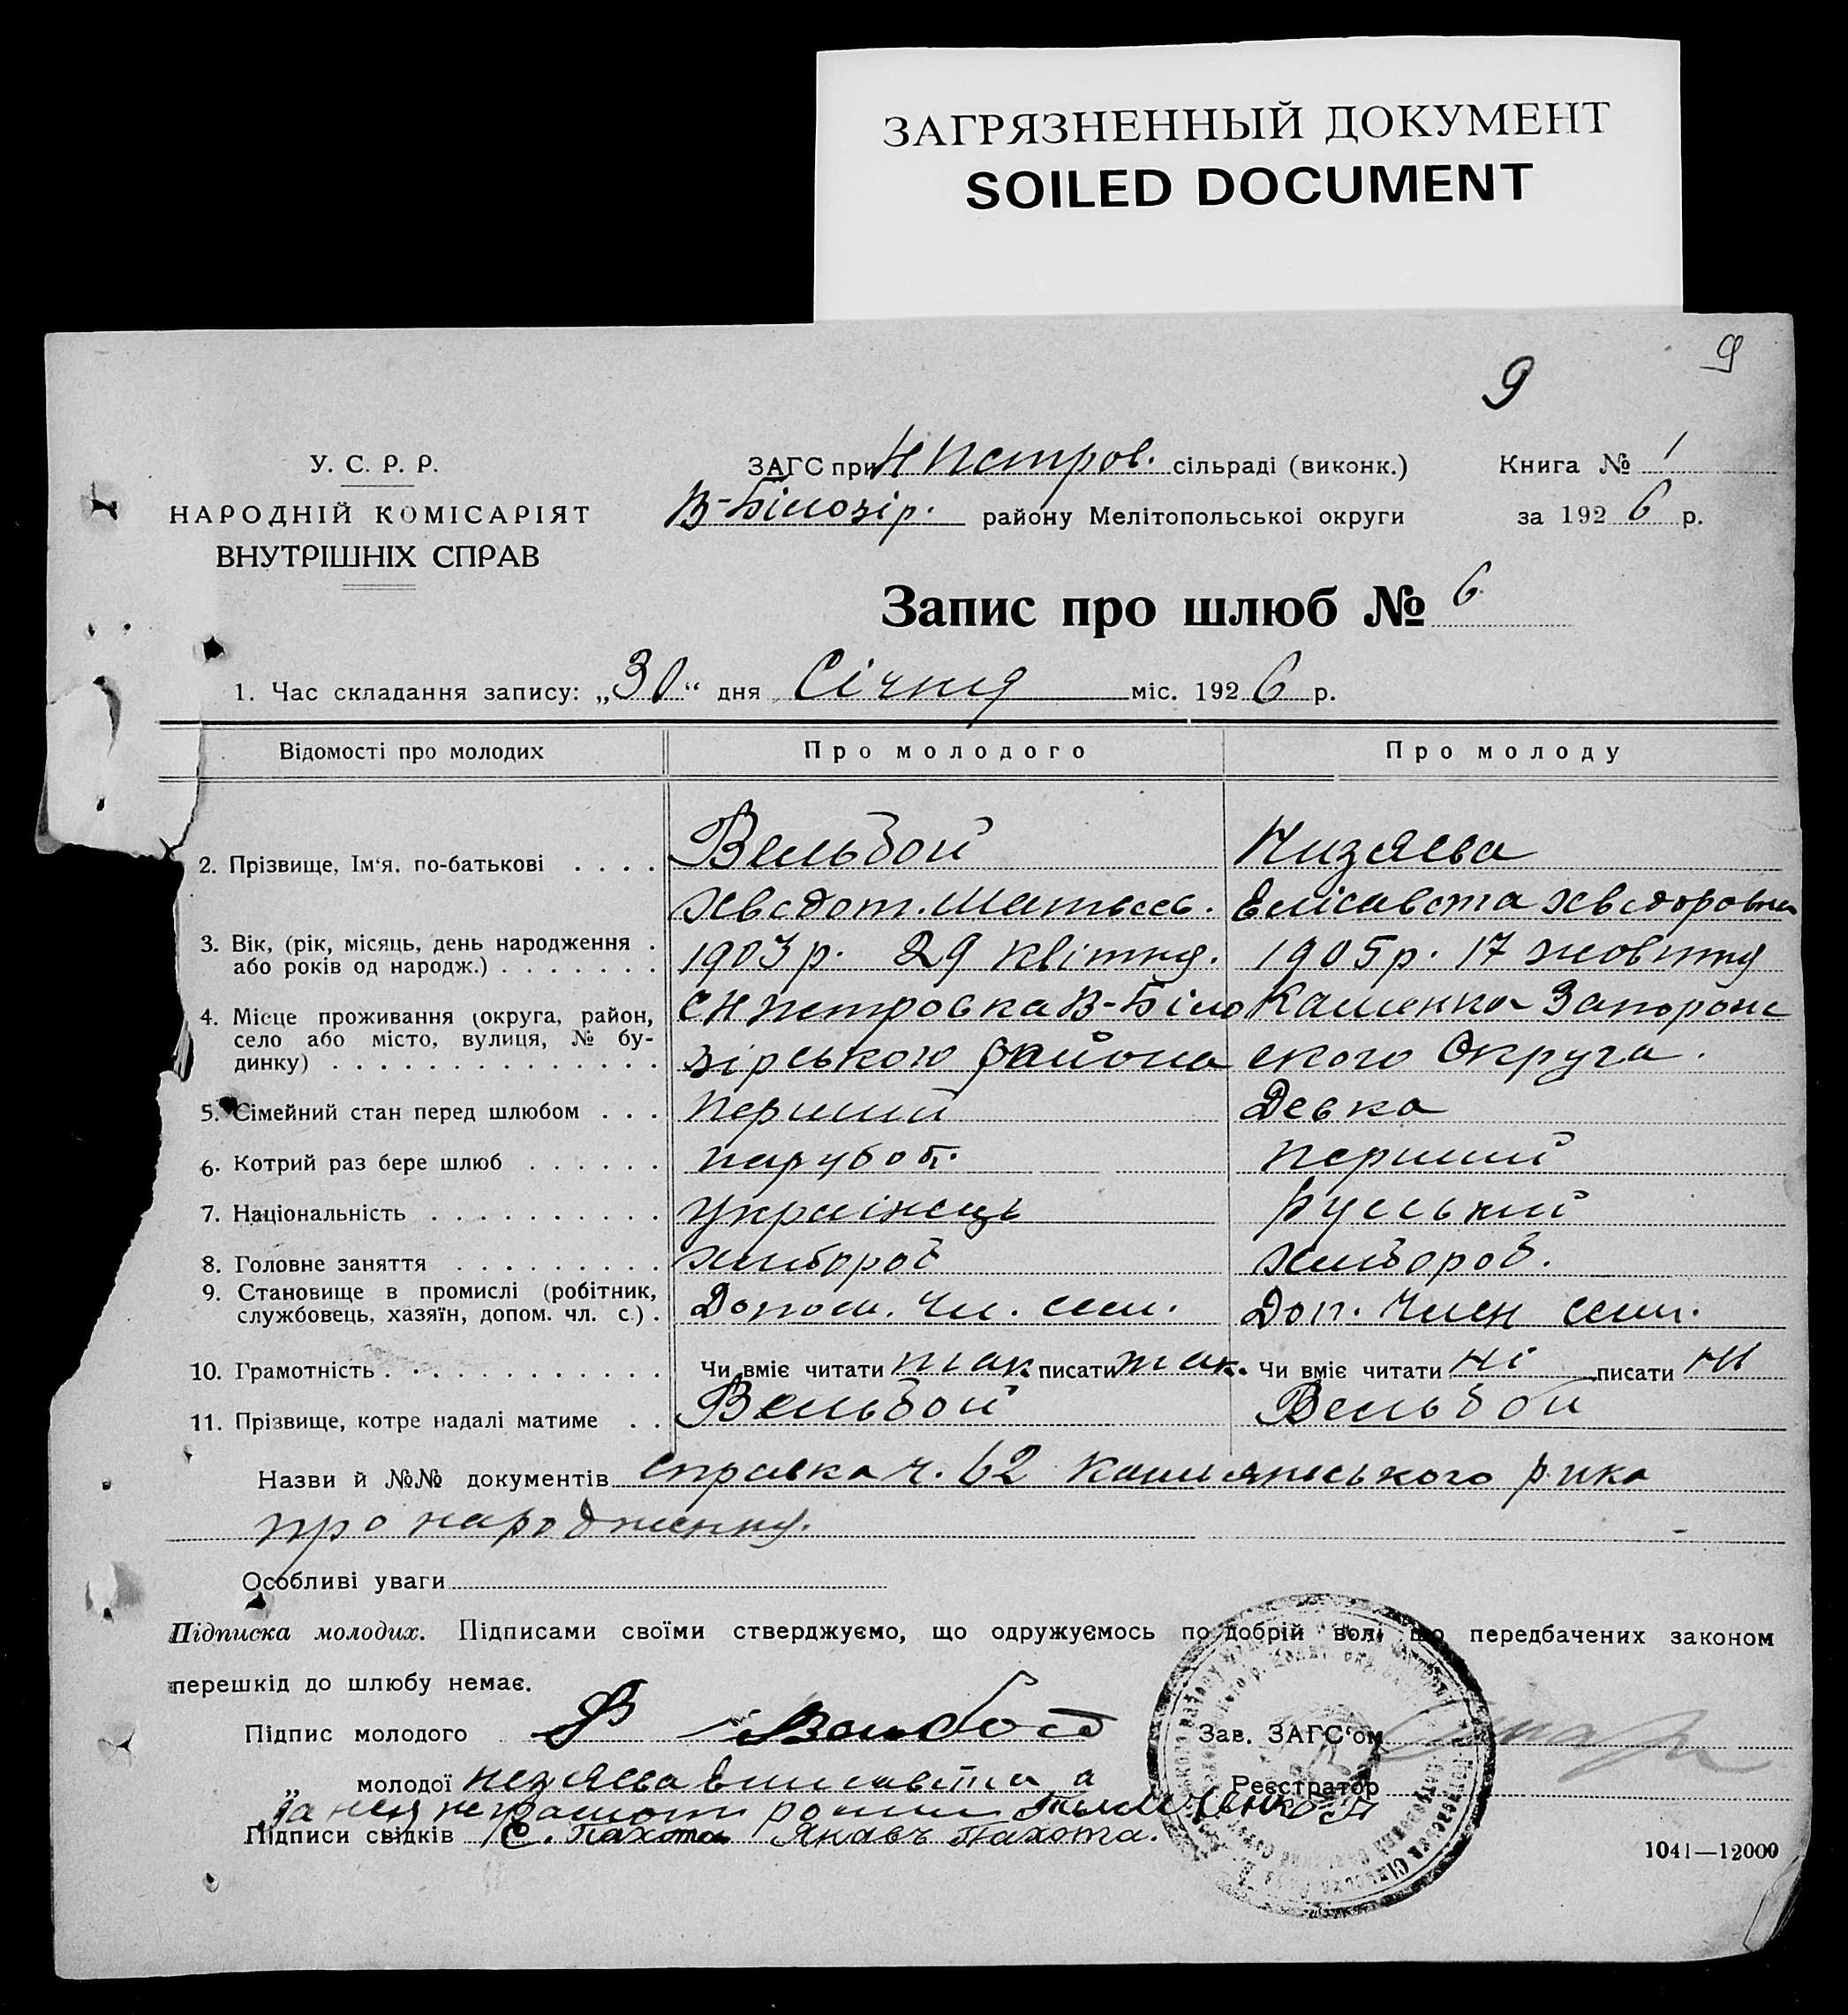 ЗАГРЯЗНЕННЫЙ ДОКУМЕНТ
SOILED DOCUMENT
9
9
У. С. Р. Р.
НАРОДНІЙ КОМІСАРІЯТ
ВНУТРІШНІХ СПРАВ
ЗАГС при Н Петров. сільраді (виконк.)
В-Білозір. району Мелітопольської округи
Книга № 1
за 1926 р.
Запис про шлюб № 6
1. Час складання запису: „30“ дня Січня міс. 1926 р.
Відомості про молодих Про молодого Про молоду
2. Прізвище, Ім'я, по-батькові . . . . Вельбой
Хведот. Матвеев. Елісавета Хведоровна
3. Вік, (рік, місяць, день народження . 1903 р. 29 квітня. 1905 р. 17 жовтня
або років од народж.) . . . . . . .
4. Місце проживання (округа, район, С Н Петровка В-Біло Каменка Запорож
село або місто, вулиця, № бу-
динку) . . . . . . . . . . . . . . зірською района ского Округа.
5. Сімейний стан перед шлюбом . . . Перший Девка
6. Котрий раз бере шлюб . . . . . . паруб Перший
7. Національність . . . . . . . . . . Украінець Руський
8. Головне заняття . . . . . . . . . Хлібороб Хлібороб.
9. Становище в промислі (робітник,
службовець, хазяїн, допом. чл. с.) . Допом. чл. сем. Доп. Член сем.
10. Грамотність . . . . . . . . . . . . Чи вміє читати так писати так. Чи вміє читати ні писати ні
11. Прізвище, котре надалі матиме . . Вельбой Вельбой
Назви й №№ документів справка ч. 62 Камьянського р.ика
про народження.
Особливі уваги
Підписка молодих. Підписами своїми стверджуємо, що одружуємось по добрій волі що передбачених законом
перешкід до шлюбу немає.
Підпис молодого
Зав. ЗАГС'ом
„ молодої Елисавета а
Реєстратор
за нея неграмот
Підписи свідків Е. Пахота Яковъ Пахота.
1041—12000